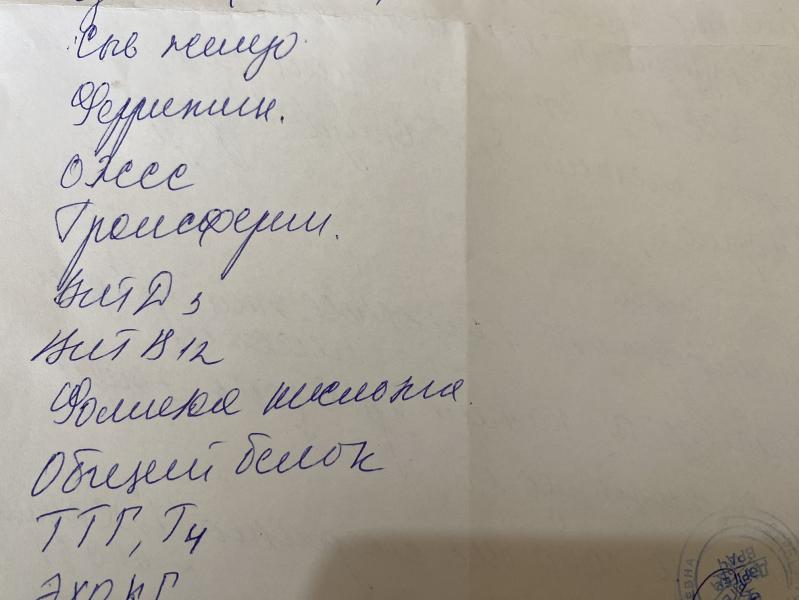 Сыв железо
Ферритин.
ОЖСС
Трансферин.
Вит Д 3
Вит В 12
Фолиевая кислота
Общий белок
ТТГ, Т4
ВРАЧ